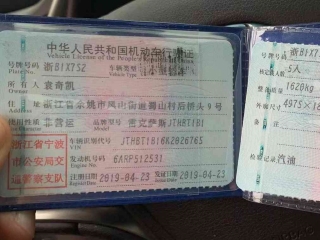 中华人民共和国机动车行驶证
Vehicle License of the People's Republic of China
号牌号码 浙B1X7S2 车辆类型
Plate No. Vehicle Type
所有人 袁奇凯
Owner
住址 浙江省余姚市凤山街道蜀山村后桥头9号
Address
使用性质 非营运 品牌型号 雷克萨斯JTHBT1B1
浙江省宁波
市公安局交
通警察支队
车辆识别代号 JTHBT1B16K2026765
VIN
发动机号码 6ARP512531
Engine No.
注册日期 2019-04-23 发证日期 2019-04-23
Register Date Issue Date
号牌号码 浙B1X
核定载人数 5人
整备质量 1620kg
外廓尺寸 4975×18
检验记录 汽油